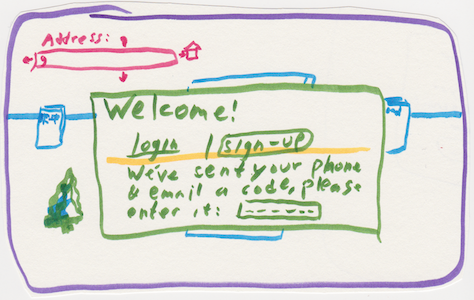 Address:
Welcome!
login | sign-up
We've sent your phone
& email a code, please
enter it: ------